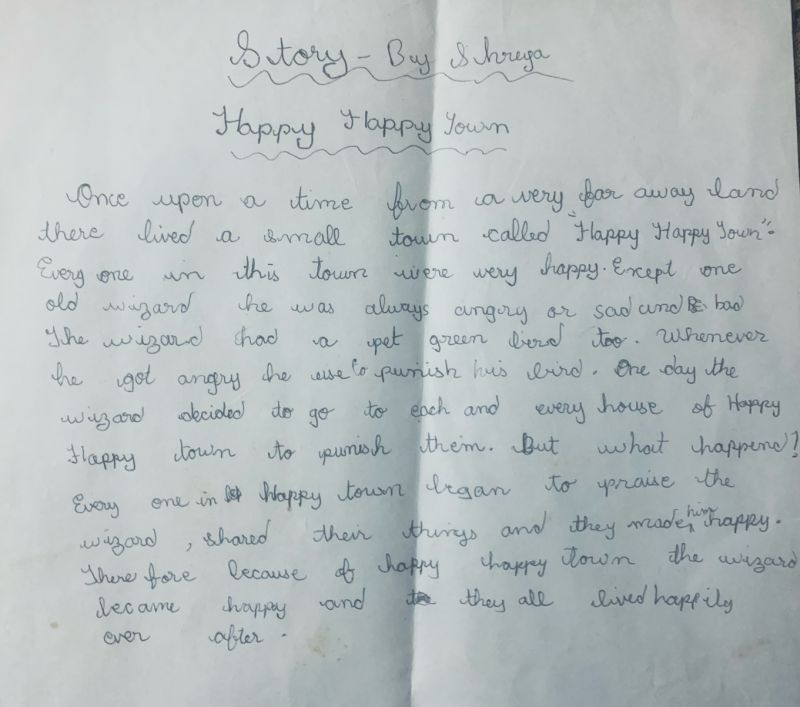 Story - By Shreya
Happy Happy Town
Once upon a time from a very far away land
there lived a small town called "Happy Happy Town".
Every one in this town were very happy. Except one
old wizard he was always angry or sad and bad
The wizard had a pet green bird too. Whenever
he got angry he use to punish his bird. One day the
wizard decided to go to each and every house of Happy
Happy town to punish them. But what happend?
Every one in Happy town began to praise the
wizard, shared their things and they made him happy.
There fore because of happy happy town the wizard
became happy and they all lived happily
ever after.